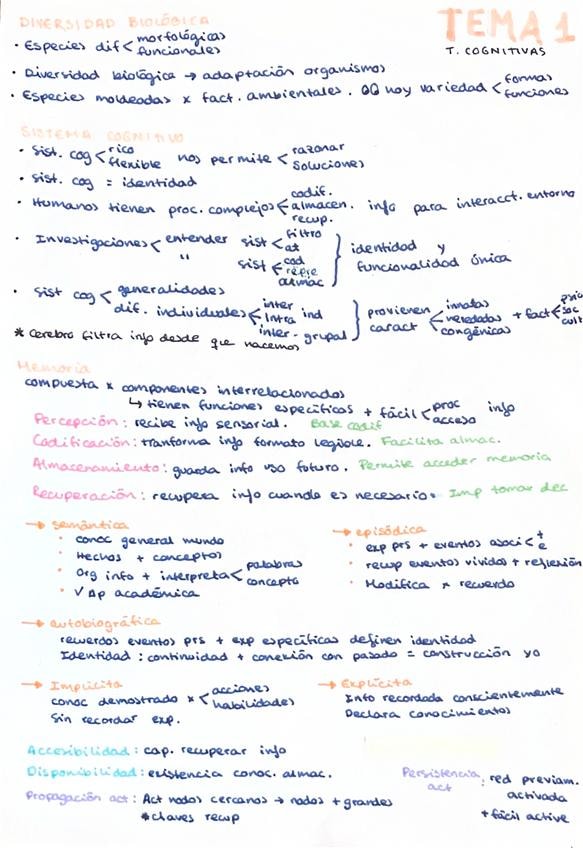 DIVERSIDAD BIOLÓGICA
TEMA 1
T. COGNITIVAS
• Especies dif < morfológicas
funcionales
• Diversidad biológica → adaptación organismos
• Especies moldeadas x fact. ambientales. QQ hoy variedad < formas
funciones
SISTEMA COGNITIVO
• Sist. cog < rico
flexible nos permite < razonar
soluciones
• Sist. cog = identidad
• Humanos tienen proc. complejos < codif.
almacen. info para interacct. entorno
recup.
• Investigaciones < entender sist < filtro
at
" sist < cod
repre
almac
} identidad y
funcionalidad única
• Sist cog < generalidades
dif. individuales < inter
Intra ind
inter-grupal
} provienen
caract < innatas
heredadas
congénitas + fact < psic
soc
cult
* Cerebro filtra info desde que nacemos
Memoria
compuesta x componentes interrelacionados
↳ tienen funciones específicas + fácil < proc
acceso info
Percepción: recibe info sensorial. Base codif
Codificación: tranforma info formato legible. Facilita almac.
Almacenamiento: guarda info uso futuro. Permite acceder memoria
Recuperación: recupera info cuando es necesario. Imp tomar dec
→ semántica
• conoc general mundo
• Hechos + conceptos
• Org info + interpreta < palabras
concepto
• √ Ap académica
→ episódica
• exp prs + eventos asoci < t
e
• recup eventos vividos + reflexión
• Modifica x recuerdo
→ autobiográfica
recuerdos eventos prs + exp específicas definen identidad
Identidad: continuidad + conexión con pasado = construcción yo
→ Implícita
conoc demostrado x < acciones
habilidades
Sin recordar exp.
→ Explícita
Info recordada conscientemente
Declara conocimientos
Accesibilidad: cap. recuperar info
Disponibilidad: existencia conoc. almac.
Propagación act: Act nodos cercanos → nodos + grandes
*claves recup
Persistencia
act : red previam.
activada
+ fácil active